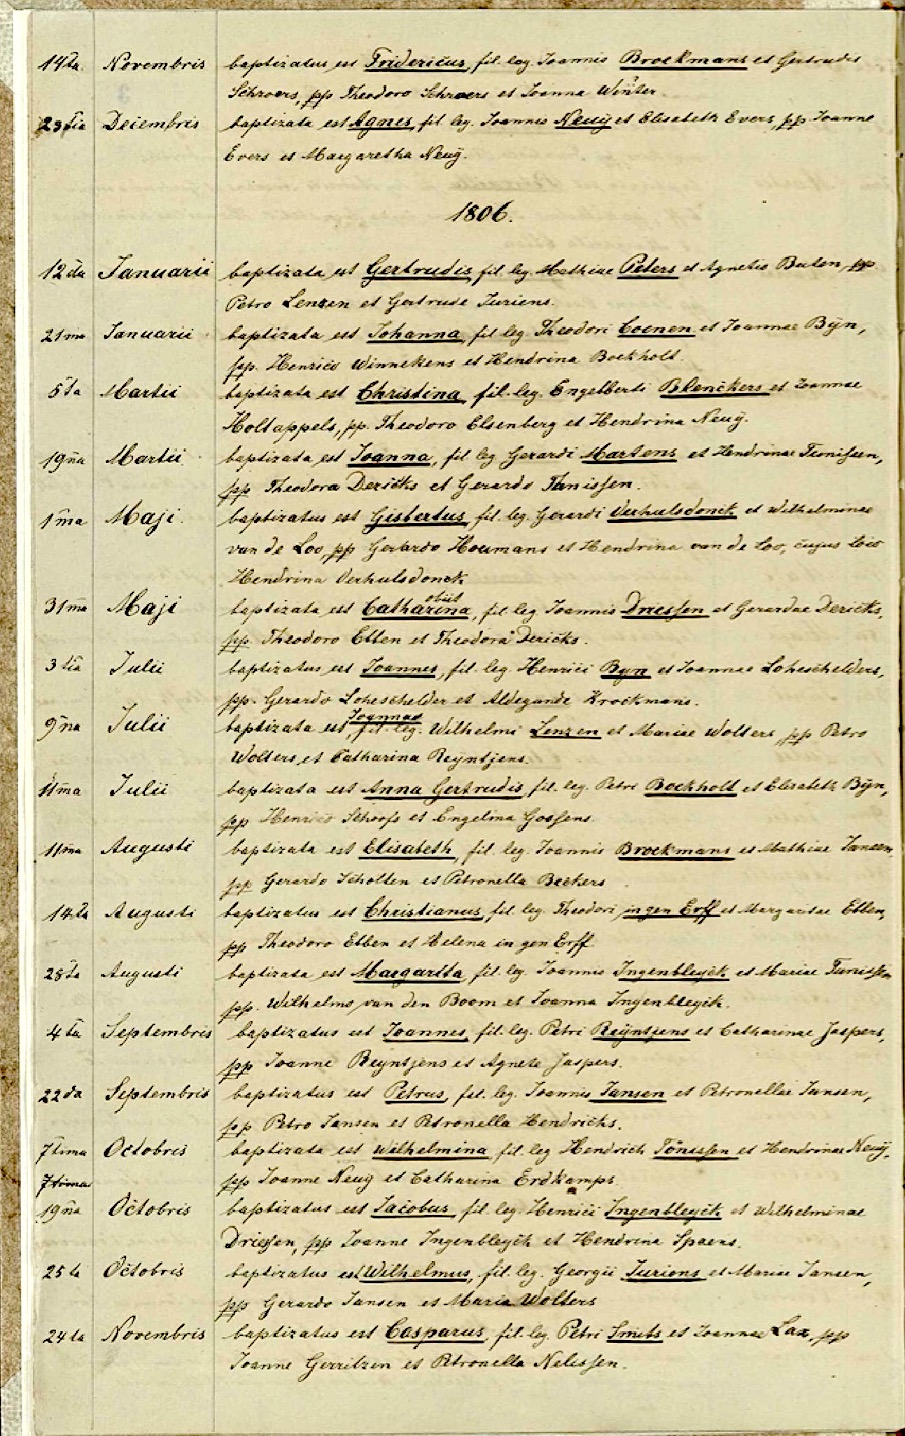 14ta Novembris baptizatus est Fridericus, fil. leg. Joannis Brockmans et Gertrudis
Schroers, pp Theodoro Schroers et Joanna Winter.
23tia Decembris baptizata est Agnes, fil. leg. Joannes Neuÿ et Elisabeth Evers, pp Joanne
Evers et Margaretha Neuÿ.
1806.
12da Januarii baptizata est Gertrudis, fil. leg. Mathiae Peters et Agnetis Buten, pp
Petro Lenzen et Gertrude Juriens.
21ma Januarii baptizata est Johanna, fil. leg. Theodori Coenen et Joannae Bÿn,
pp. Henrico Winnekens et Hendrina Boekholt.
5ta Martii baptizata est Christina, fil. leg. Engelberti Blenckers et Joannae
Holtappels, pp. Theodoro Elsenberg et Hendrina Neuÿ.
19na Martii baptizata est Joanna, fil. leg. Gerardi Martens et Hendrinae Teunissen,
pp Theodora Dericks et Gerardo Tunissen.
1ma Maji baptizatus est Gisbertus, fil. leg. Gerardi Verhulsdonck et Wilhelminae
van de Loo, pp Gerardo Houmans et Hendrina van de Loo, cujus loco
Hendrina Verhulsdonck
obiit
31ma Maji baptizata est Catharina, fil. leg. Joannis Driessen et Gerardae Dericks,
pp. Theodoro Ebben et Theodora Dericks.
3tia Julii baptizatus est Joannes, fil. leg. Henrici Byn et Joannae Loheschelders,
pp. Gerardo Loheschelder et Aldegunde Krockmans.
Joannae
9na Julii baptizata est, fil. leg. Wilhelmi Lenzen et Mariae Wolters, pp Petro
Wolters et Catharina Reÿntjens.
11ma Julii baptizata est Anna Gertrudis, fil. leg. Petri Boekholt et Elisabeth Bÿn,
pp Henrico Schoofs et Engelina Gossens.
11ma Augusti baptizata est Elisabeth, fil. leg. Joannis Brockmans et Mathiae Jansen,
pp Gerardo Scholten et Petronella Beckers.
14ta Augusti baptizatus est Christianus, fil. leg. Theodori in gen Erff et Margaritae Ebben,
pp Theodoro Ebben et Helena in gen Erff
28ta Augusti baptizata est Margarita, fil. leg. Joannis Ingenbleyck et Mariae Tunissen
pp. Wilhelmo van den Boom et Joanna Ingenbleyck.
4ta Septembris baptizatus est Joannes, fil. leg. Petri Reÿntjens et Catharinae Jaspers,
pp Joanne Reyntjens et Agnete Jaspers.
22da Septembris baptizatus est Petrus, fil. leg. Joannis Jansen et Petronellae Jansen,
pp Petro Jansen et Petronella Hendricks.
7tima Octobris baptizata est Wilhelmina, fil. leg. Hendrich Tönissen et Hendrinae Neuÿ,
7tima pp Joanne Neuÿ et Catharina Erdkamps.
19na Octobris baptizatus est Jacobus, fil. leg. Henrici Ingenbleyck et Wilhelminae
Driessen, pp Joanne Ingenbleyck et Hendrina Spaers.
25ta Octobris baptizatus est Wilhelmus, fil. leg. Georgii Juriens et Mariae Jansen,
pp Gerardo Jansen et Maria Wolters
24ta Novembris baptizatus est Casparus, fil. leg. Petri Smits et Joannae Lax, pp
Joanne Gerritzen et Petronella Nelissen.